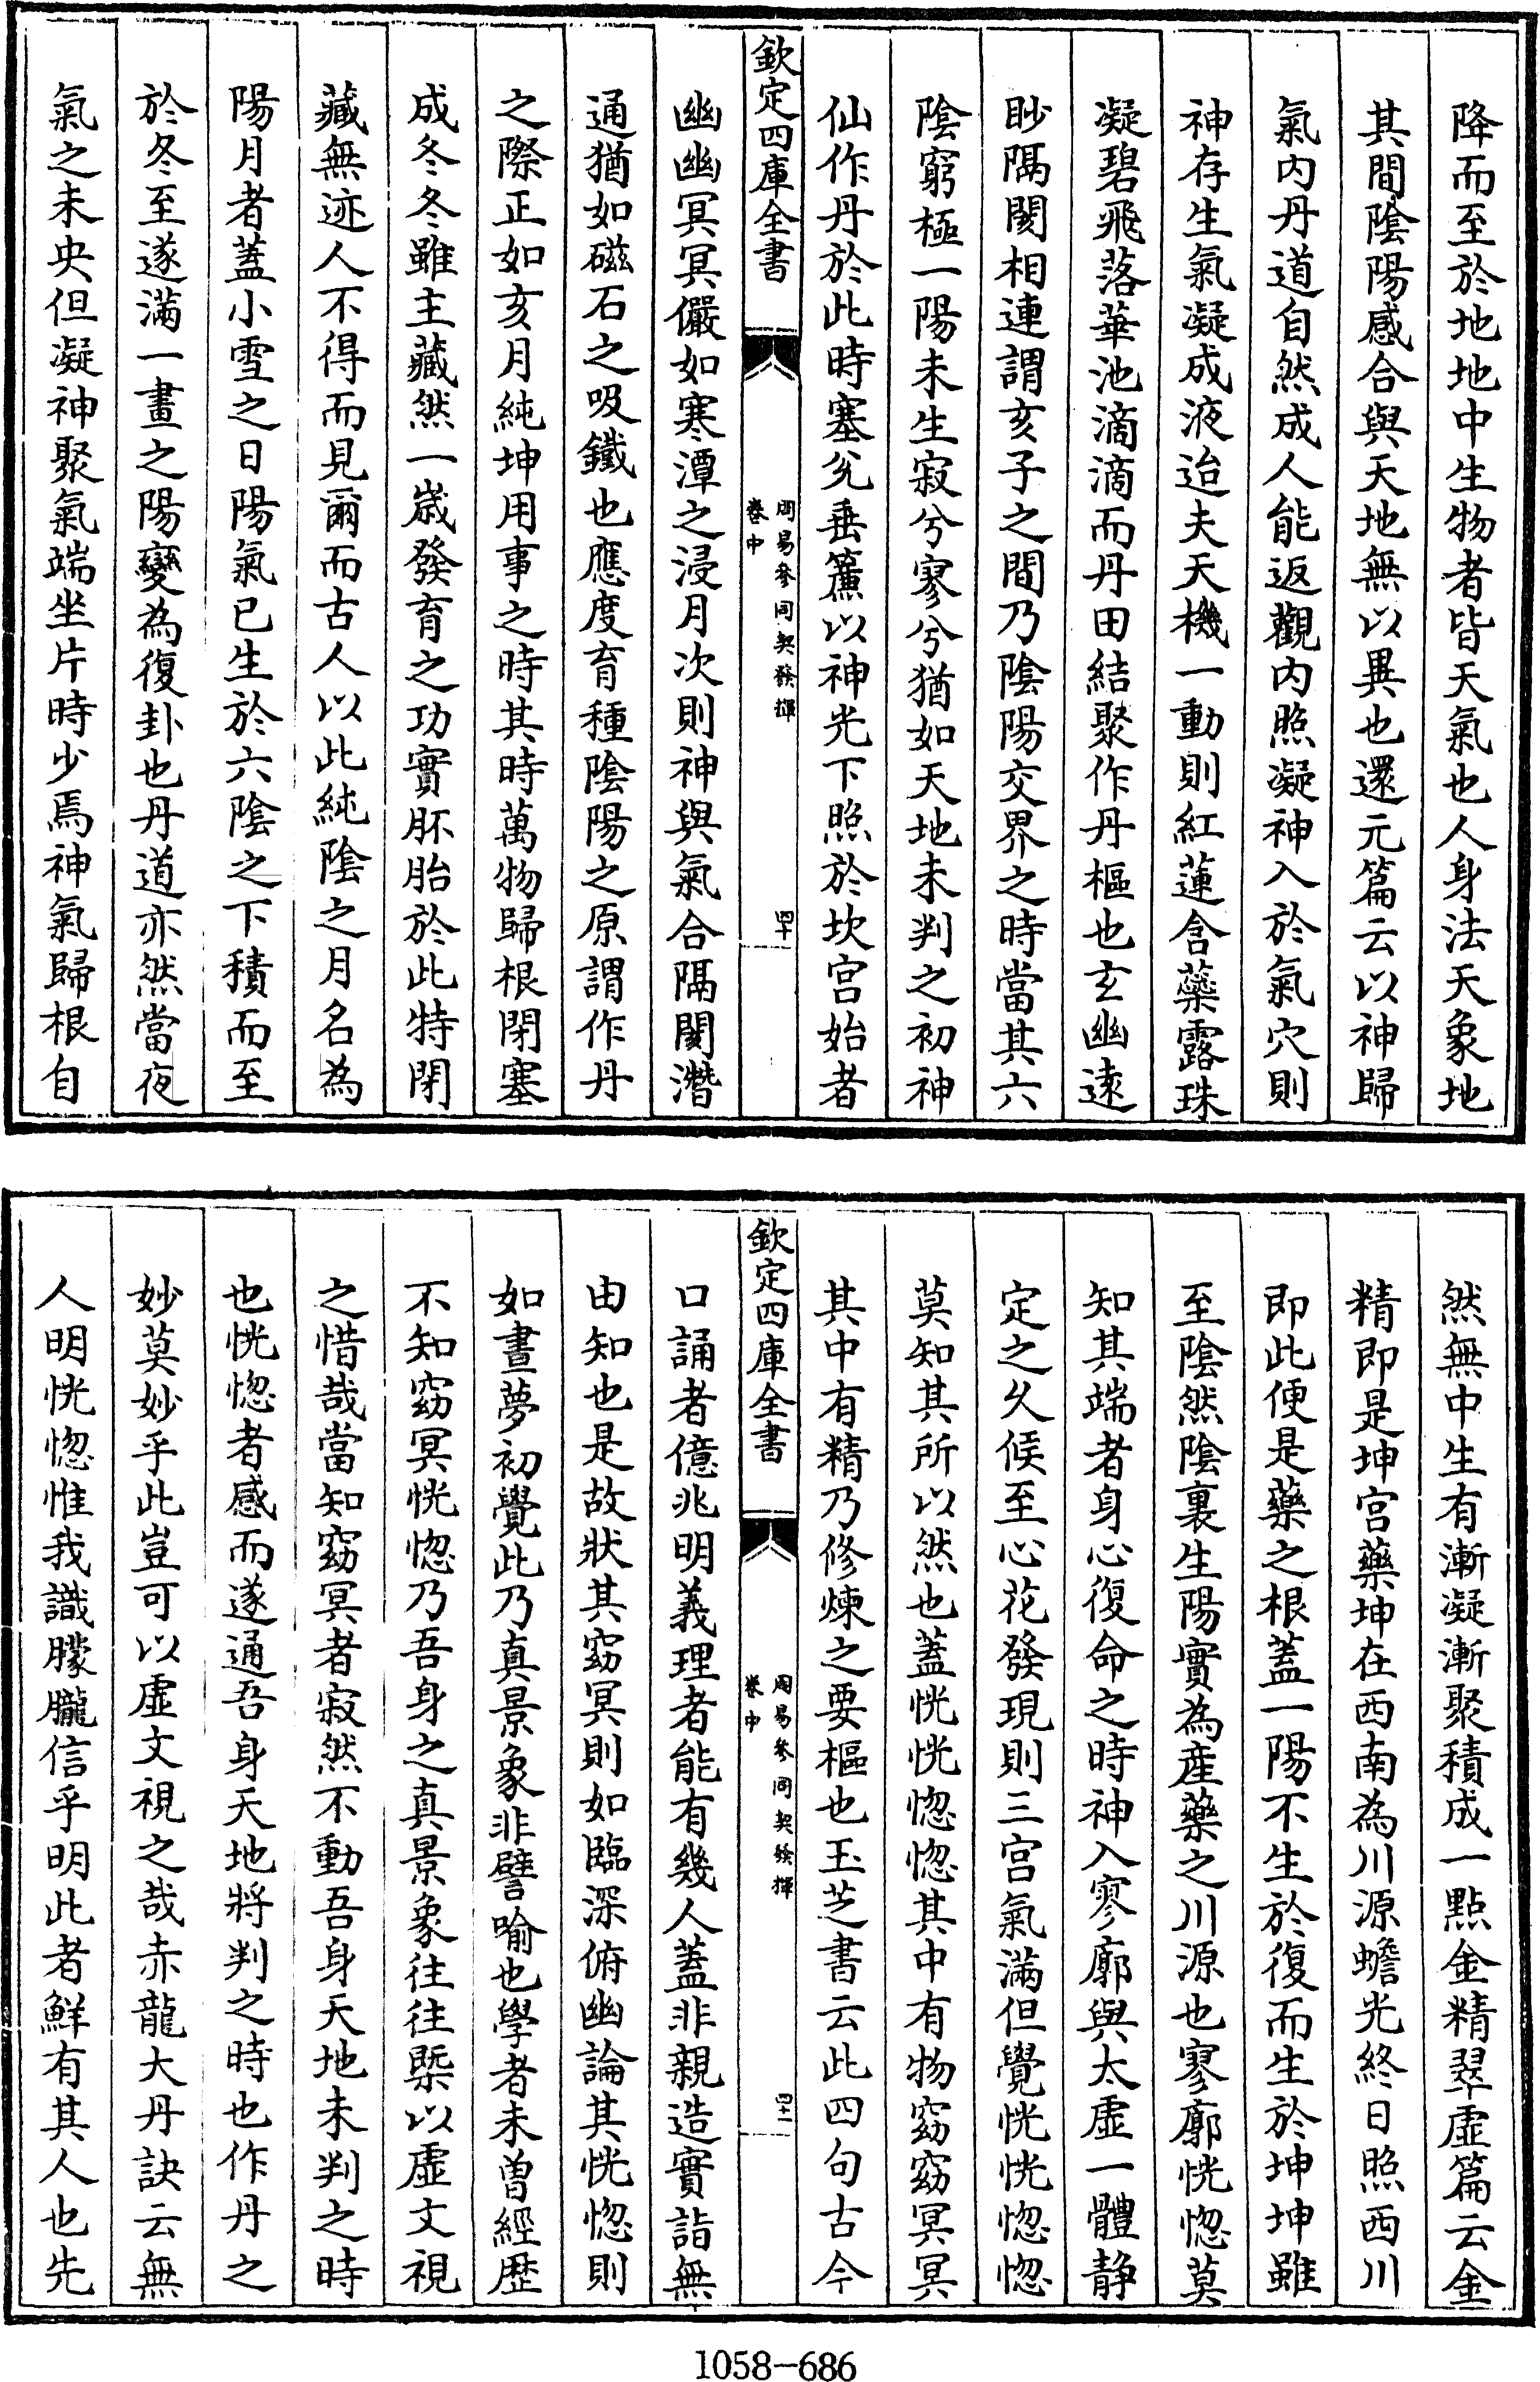 降而至於地地中生物者皆天氣也人身法天象地
其間陰陽感合與天地無以異也還元篇云以神歸
氣內丹道自然成人能返觀內照凝神入於氣穴則
神存生氣凝成液迨夫天機一動則紅蓮含藥露珠
凝碧飛落華池滴滴而丹田結聚作丹樞也玄幽遠
眇隔閡相連謂亥子之間乃陰陽交界之時當其六
陰窮極一陽未生寂兮寥兮猶如天地未判之初神
仙作丹於此時塞兊垂簾以神光下照於坎宫始者
欽定四庫全書
周易參同契發揮
卷中
四十
幽幽冥冥儼如寒潭之浸月次則神與氣合隔閡潛
通猶如磁石之吸鐵也應度育種陰陽之原謂作丹
之際正如亥月純坤用事之時其時萬物歸根閉塞
成冬冬雖主藏然一歲發育之功實胚胎於此特閉
藏無迹人不得而見爾而古人以此純陰之月名為
陽月者蓋小雪之日陽氣已生於六陰之下積而至
於冬至遂滿一畫之陽變為復卦也丹道亦然當夜
氣之未央但凝神聚氣端坐片時少焉神氣歸根自
然無中生有漸凝漸聚積成一點金精翠虛篇云金
精即是坤宫藥坤在西南為川源蟾光終日照西川
即此便是藥之根蓋一陽不生於復而生於坤坤雖
至陰然陰裏生陽實為產藥之川源也寥廓恍惚莫
知其端者身心復命之時神入寥廓與太虛一體静
定之久候至心花發現則三宫氣滿但覺恍恍惚惚
莫知其所以然也蓋恍恍惚惚其中有物窈窈冥冥
其中有精乃修煉之要樞也玉芝書云此四句古今
欽定四庫全書
周易參同契發揮
卷中
四十一
口誦者億兆明義理者能有幾人蓋非親造實詣無
由知也是故狀其窈冥則如臨深俯幽論其恍惚則
如晝夢初覺此乃真景象非譬喻也學者未曽經歷
不知窈冥恍惚乃吾身之真景象往往槩以虛文視
之惜哉當知窈冥者寂然不動吾身天地未判之時
也恍惚者感而遂通吾身天地將判之時也作丹之
妙莫妙乎此豈可以虛文視之哉赤龍大丹訣云無
人明恍惚惟我識朦朧信乎明此者鮮有其人也先
1058-686